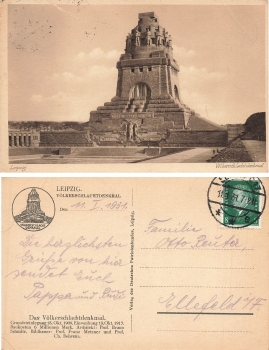 Leipzig
Völkerschlachtdenkmal
LEIPZIG
VÖLKERSCHLACHTDENKMAL
Den 11. V. 1931.
Die herzlichsten
Grüsse von hier
sendet Euch
Pappa und
Das Völkerschlachtdenkmal.
Grundsteinlegung 18. Okt. 1900, Einweihung 18. Okt. 1913.
Baukosten 6 Millionen Mark. Architekt: Prof. Bruno
Schmitz. Bildhauer: Prof. Franz Metzner und Prof.
Ch. Behrens.
Verlag des Deutschen Patriotenbundes, Leipzig.
Familie
Otto Reuter
Ellefeld i/V.